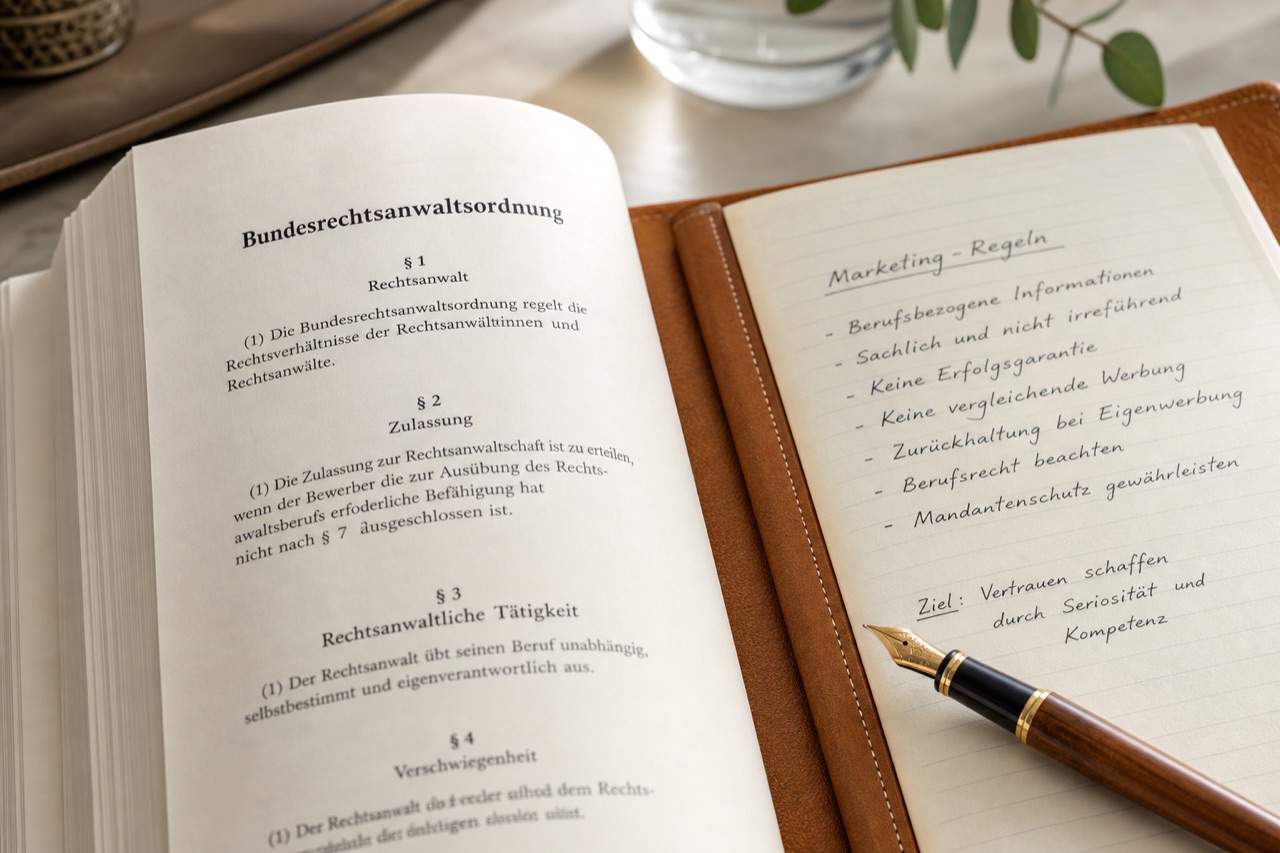 Bundesrechtsanwaltsordnung
§ 1
Rechtsanwalt
(1) Die Bundesrechtsanwaltsordnung regelt die
Rechtsverhältnisse der Rechtsanwältinnen und
Rechtsanwälte.
§ 2
Zulassung
(1) Die Zulassung zur Rechtsanwaltschaft ist zu erteilen,
wenn der Bewerber die zur Ausübung des Rechts-
awaltsberufs erfoderliche Befähigung hat
nicht nach § 7 ausgeschlossen ist.
§ 3
Rechtsanwaltliche Tätigkeit
(1) Der Rechtsanwalt übt seinen Beruf unabhängig,
selbstbestimmt und eigenverantwortlich aus.
§ 4
Verschwiegenheit
(1) Der Rechtsanwalt dem Rechts-
Marketing - Regeln
- Berufsbezogene Informationen
- Sachlich und nicht irreführend
- Keine Erfolgsgarantie
- Keine vergleichende Werbung
- Zurückhaltung bei Eigenwerbung
- Berufsrecht beachten
- Mandantenschutz gewährleisten
Ziel: Vertrauen schaffen
durch Seriosität und
Kompetenz